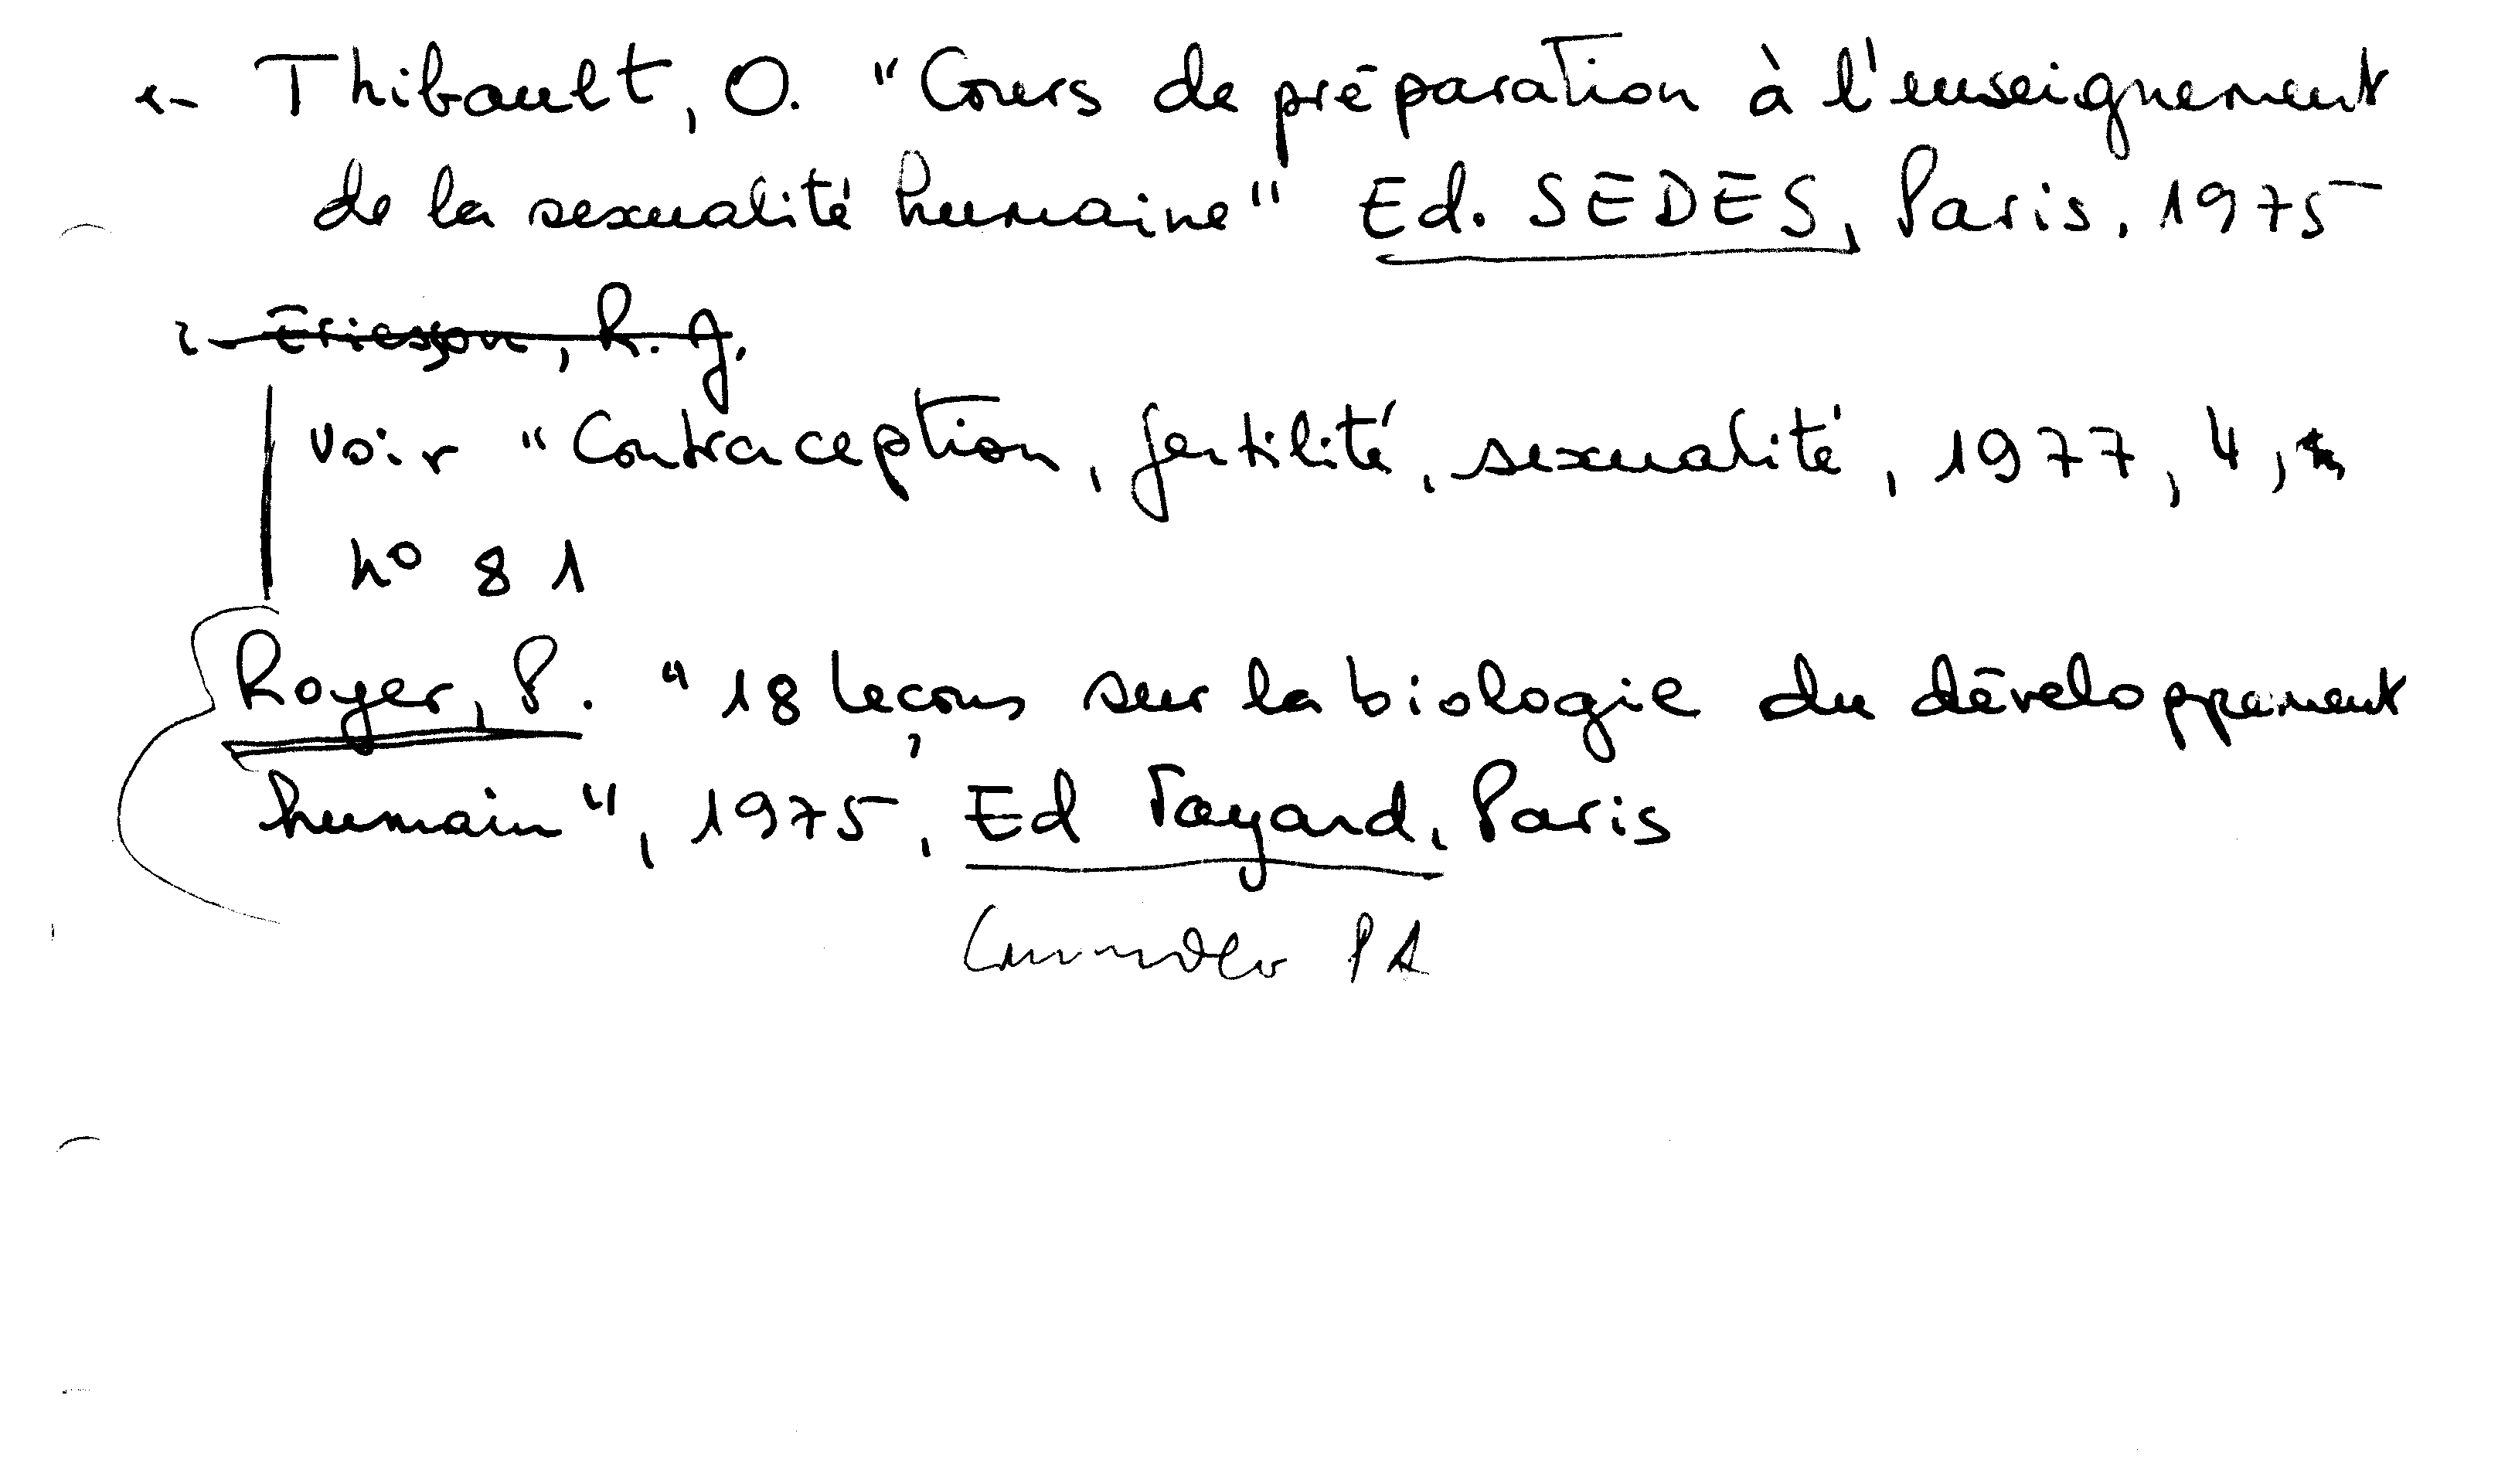 - Thibault, O. "Cours de préparation à l'enseignement
de la sexualité humaine" Ed. SEDES, Paris, 1975
- Ericsson, R. J.
Voir "Contraception, fertilité, sexualité, 1977, 4,
n° 81
Royer, P. "18 leçons sur la biologie du développement
humain", 1975, Ed Fayard, Paris